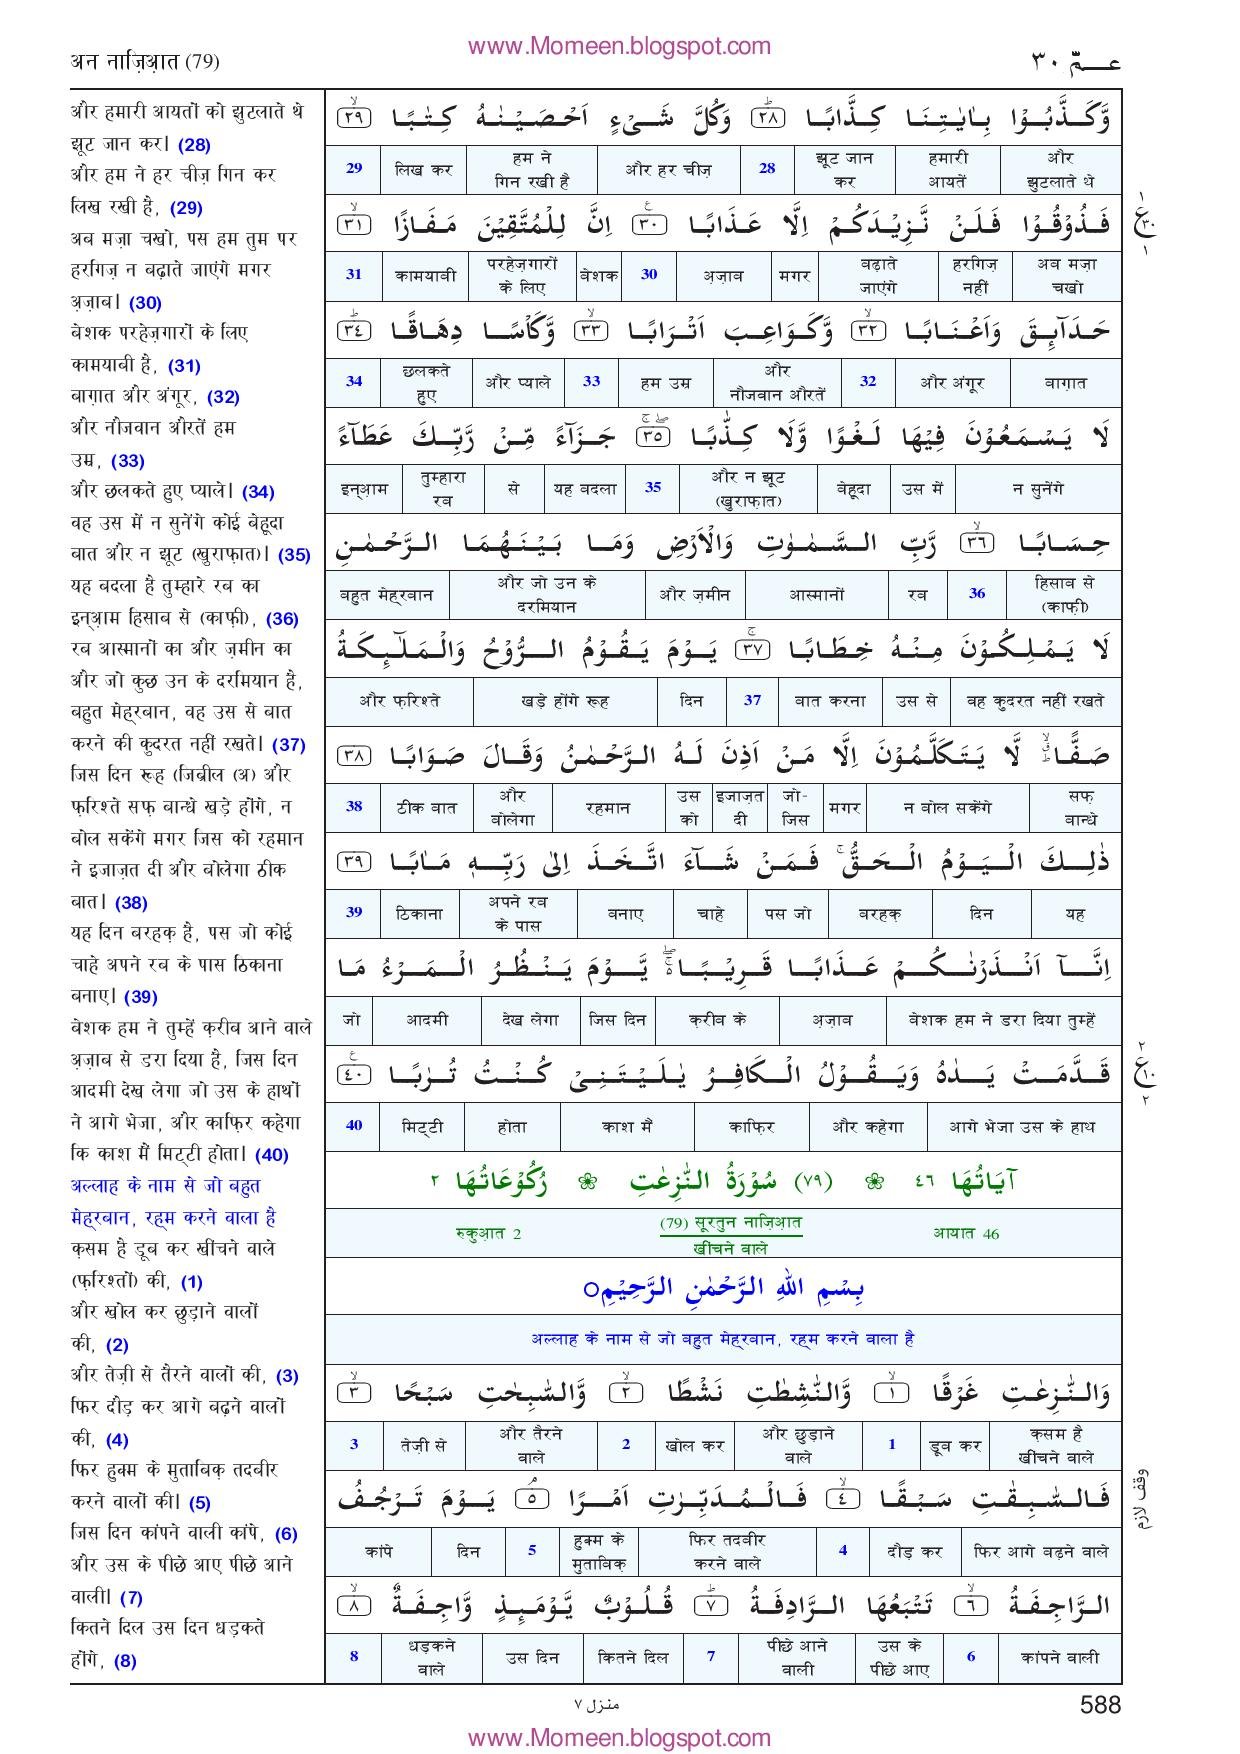 www.Momeen.blogspot.com
अन नाज़िआ़त (79)
عـــمّ ٣٠
और हमारी आयतों को झुटलाते थे
झूट जान कर। (28)
और हम ने हर चीज़ गिन कर
लिख रखी है, (29)
अब मज़ा चखो, पस हम तुम पर
हरगिज़ न बढ़ाते जाएंगे मगर
अ़ज़ाब। (30)
बेशक परहेज़गारों के लिए
कामयाबी है, (31)
बाग़ात और अंगूर, (32)
और नौजवान औरतें हम
उम्र, (33)
और छलकते हुए प्याले। (34)
वह उस में न सुनेंगे कोई बेहूदा
बात और न झूट (खुराफ़ात)। (35)
यह बदला है तुम्हारे रब का
इन्आ़म हिसाब से (काफ़ी), (36)
रब आस्मानों का और ज़मीन का
और जो कुछ उन के दरमियान है,
बहुत मेह्‌रबान, वह उस से बात
करने की कुदरत नहीं रखते। (37)
जिस दिन रूह (जिब्रील (अ) और
फ़रिश्ते सफ़ बान्धे खड़े होंगे, न
बोल सकेंगे मगर जिस को रहमान
ने इजाज़त दी और बोलेगा ठीक
बात। (38)
यह दिन बरहक़ है, पस जो कोई
चाहे अपने रब के पास ठिकाना
बनाए। (39)
बेशक हम ने तुम्हें क़रीब आने वाले
अ़ज़ाब से डरा दिया है, जिस दिन
आदमी देख लेगा जो उस के हाथों
ने आगे भेजा, और काफ़िर कहेगा
कि काश मैं मिट्टी होता। (40)
अल्लाह के नाम से जो बहुत
मेह्‌रबान, रह्‌म करने वाला है
क़सम है डूब कर खींचने वाले
(फ़रिश्तों) की, (1)
और खोल कर छुड़ाने वालों
की, (2)
और तेज़ी से तैरने वालों की, (3)
फिर दौड़ कर आगे बढ़ने वालों
की, (4)
फिर हुक्म के मुताबिक़ तदबीर
करने वालों की। (5)
जिस दिन कांपने वाली कांपे, (6)
और उस के पीछे आए पीछे आने
वाली। (7)
कितने दिल उस दिन धड़कते
होंगे, (8)
وَّكَذَّبُوْا بِاٰيٰتِنَا كِذَّابًا ٢٨ وَكُلَّ شَىْءٍ اَحْصَيْنٰهُ كِتٰبًا ٢٩
और झुटलाते थे | हमारी आयतें | झूट जान कर | 28 | और हर चीज़ | हम ने गिन रखी है | लिख कर | 29
فَذُوْقُوْا فَلَنْ نَّزِيْدَكُمْ اِلَّا عَذَابًا ٣٠ اِنَّ لِلْمُتَّقِيْنَ مَفَازًا ٣١
अब मज़ा चखो | हरगिज़ नहीं | बढ़ाते जाएंगे | मगर | अ़ज़ाब | 30 | बेशक | परहेज़गारों के लिए | कामयाबी | 31
حَدَآئِقَ وَاَعْنَابًا ٣٢ وَّكَوَاعِبَ اَتْرَابًا ٣٣ وَّكَاْسًا دِهَاقًا ٣٤
बाग़ात | और अंगूर | 32 | और नौजवान औरतें | हम उम्र | 33 | और प्याले | छलकते हुए | 34
لَا يَسْمَعُوْنَ فِيْهَا لَغْوًا وَّلَا كِذّٰبًا ٣٥ جَزَآءً مِّنْ رَّبِّكَ عَطَآءً
न सुनेंगे | उस में | बेहूदा | और न झूट (खुराफ़ात) | 35 | यह बदला | से | तुम्हारा रब | इन्आ़म
حِسَابًا ٣٦ رَّبِّ السَّمٰوٰتِ وَالْاَرْضِ وَمَا بَيْنَهُمَا الرَّحْمٰنِ
हिसाब से (काफ़ी) | 36 | रब | आस्मानों | और ज़मीन | और जो उन के दरमियान | बहुत मेह्‌रबान
لَا يَمْلِكُوْنَ مِنْهُ خِطَابًا ٣٧ يَوْمَ يَقُوْمُ الرُّوْحُ وَالْمَلٰٓئِكَةُ
वह कुदरत नहीं रखते | उस से | बात करना | 37 | दिन | खड़े होंगे रूह | और फ़रिश्ते
صَفًّا لَّا يَتَكَلَّمُوْنَ اِلَّا مَنْ اَذِنَ لَهُ الرَّحْمٰنُ وَقَالَ صَوَابًا ٣٨
सफ़ बान्धे | न बोल सकेंगे | मगर | जो-जिस | इजाज़त दी | उस को | रहमान | और बोलेगा | ठीक बात | 38
ذٰلِكَ الْيَوْمُ الْحَقُّ فَمَنْ شَآءَ اتَّخَذَ اِلٰى رَبِّهٖ مَاٰبًا ٣٩
यह | दिन | बरहक़ | पस जो | चाहे | बनाए | अपने रब के पास | ठिकाना | 39
اِنَّآ اَنْذَرْنٰكُمْ عَذَابًا قَرِيْبًا يَّوْمَ يَنْظُرُ الْمَرْءُ مَا
बेशक हम ने डरा दिया तुम्हें | अ़ज़ाब | क़रीब के | जिस दिन | देख लेगा | आदमी | जो
قَدَّمَتْ يَدٰهُ وَيَقُوْلُ الْكَافِرُ يٰلَيْتَنِىْ كُنْتُ تُرٰبًا ٤٠
आगे भेजा उस के हाथ | और कहेगा | काफ़िर | काश मैं | होता | मिट्टी | 40
آيَاتُهَا ٤٦ ❀ (٧٩) سُوْرَةُ النّٰزِعٰتِ ❀ رُكُوْعَاتُهَا ٢
आयात 46 | (79) सूरतुन नाज़िआ़त | रुकुआ़त 2
खींचने वाले
بِسْمِ اللهِ الرَّحْمٰنِ الرَّحِيْمِ○
अल्लाह के नाम से जो बहुत मेह्‌रबान, रह्‌म करने वाला है
وَالنّٰزِعٰتِ غَرْقًا ١ وَّالنّٰشِطٰتِ نَشْطًا ٢ وَّالسّٰبِحٰتِ سَبْحًا ٣
क़सम है खींचने वाले | डूब कर | 1 | और छुड़ाने वाले | खोल कर | 2 | और तैरने वाले | तेज़ी से | 3
فَالسّٰبِقٰتِ سَبْقًا ٤ فَالْمُدَبِّرٰتِ اَمْرًا ٥ يَوْمَ تَرْجُفُ
फिर आगे बढ़ने वाले | दौड़ कर | 4 | फिर तदबीर करने वाले | हुक्म के मुताबिक़ | 5 | दिन | कांपे
الرَّاجِفَةُ ٦ تَتْبَعُهَا الرَّادِفَةُ ٧ قُلُوْبٌ يَّوْمَئِذٍ وَّاجِفَةٌ ٨
कांपने वाली | 6 | उस के पीछे आए | पीछे आने वाली | 7 | कितने दिल | उस दिन | धड़कने वाले | 8
١ ع ٣٠ ١
٢ ع ١٠ ٢
وقف لازم
منزل ٧
588
www.Momeen.blogspot.com